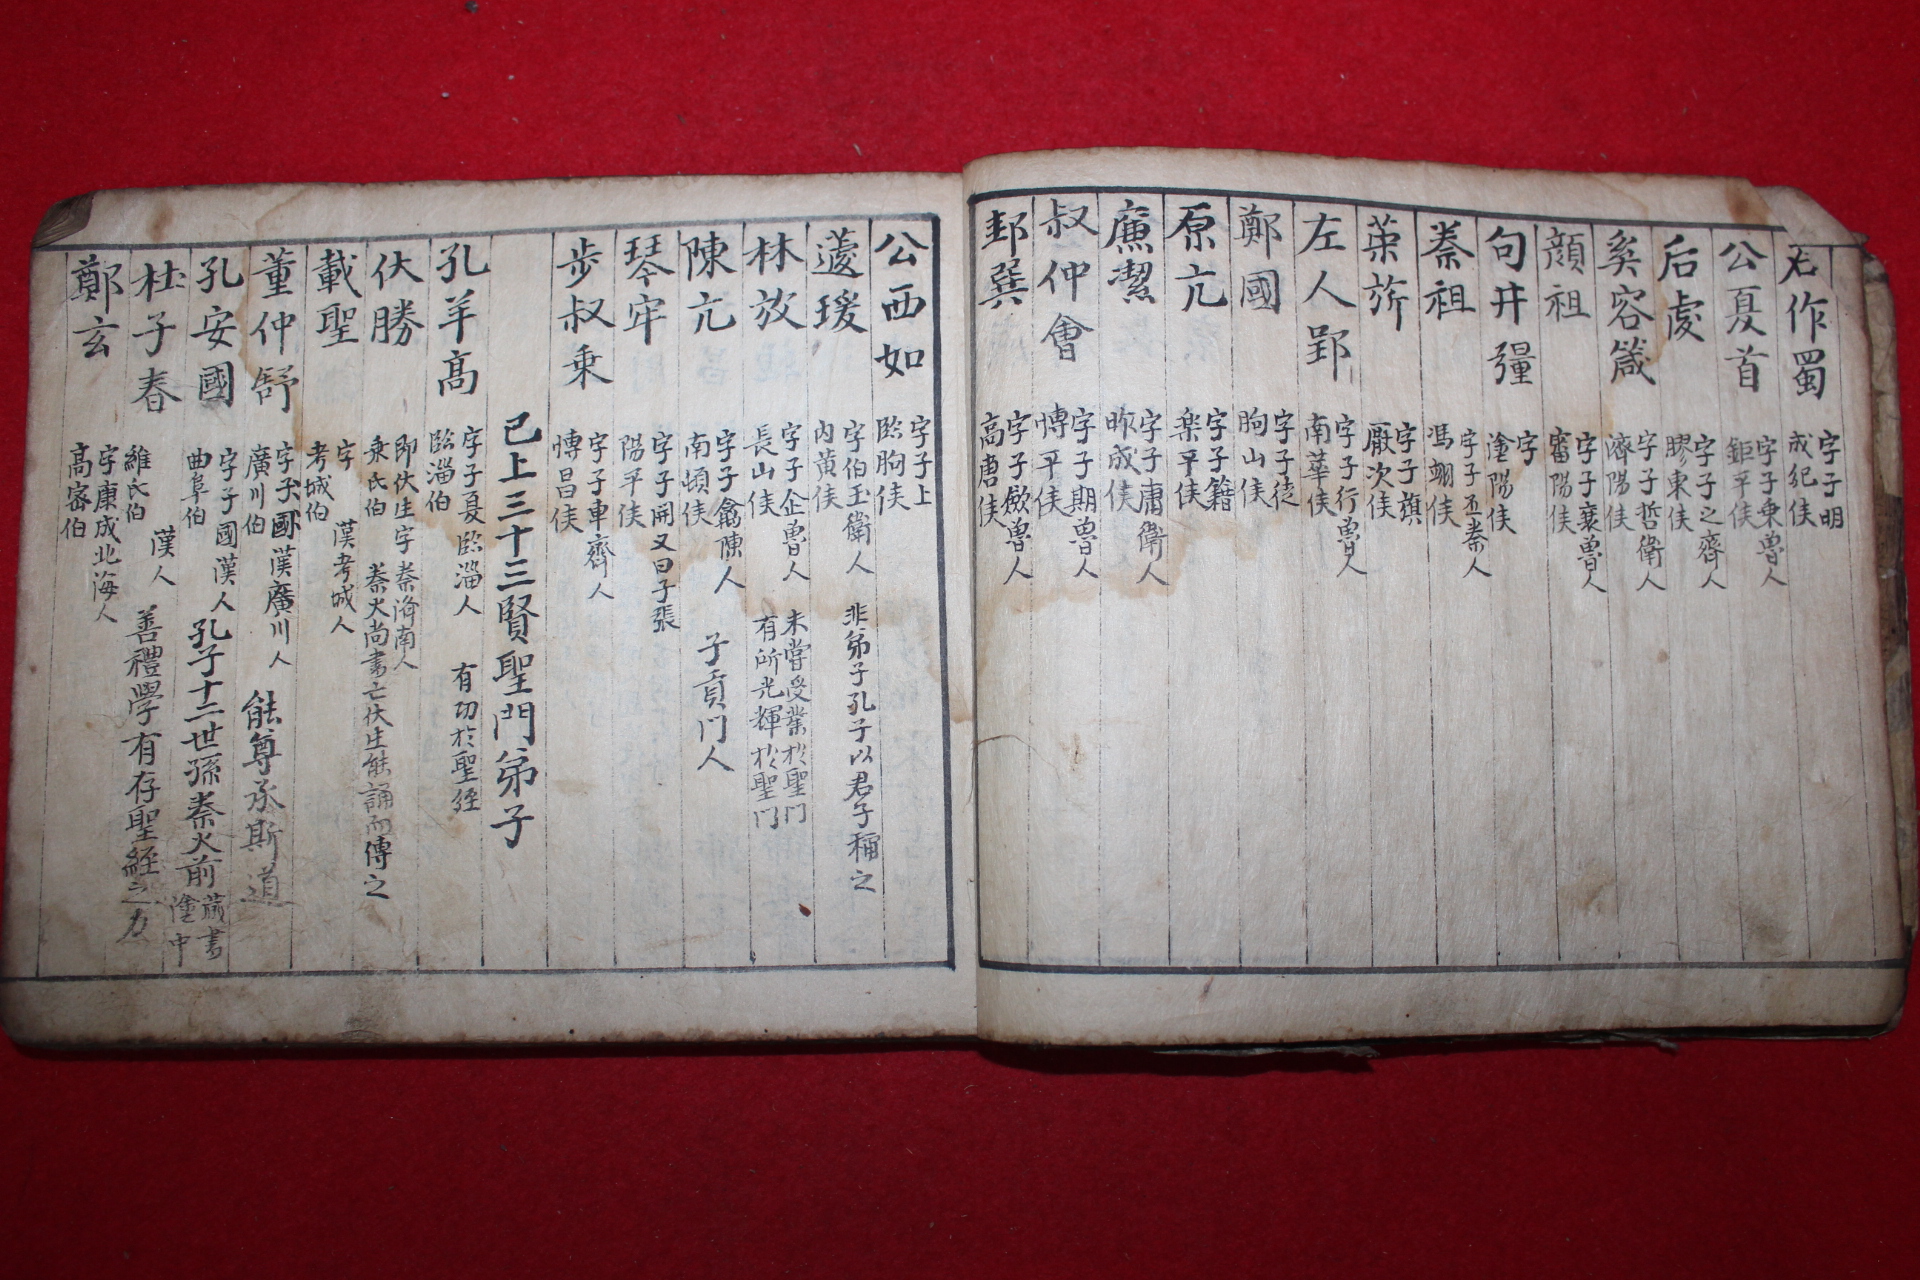 石作蜀 字子明 成紀侯
公夏首 字子乗魯人 鉅平侯
后處 字子之齊人 膠東侯
奚容箴 字子哲衛人 濟陽侯
顔祖 字子襄魯人 富陽侯
句井彊 字 淦陽侯
秦祖 字子丕秦人 馮翊侯
荣旂 字子旗 厭次侯
左人郢 字子行魯人 南華侯
鄭國 字子徒 朐山侯
原亢 字子籍 楽平侯
廉潔 字子庸衛人 昨成侯
叔仲會 字子期魯人 愽平侯
邽巽 字子斂魯人 高唐侯
公西如 字子上 臨朐侯
蘧瑗 字伯玉衛人 内黄侯 非弟子孔子以君子稱之
林放 字子企魯人 長山侯 未嘗受業於聖門 有所光輝於聖門
陳亢 字子禽陳人 南頓侯 子貢門人
琴牢 字子開又曰子張 陽平侯
步叔乗 字子車齊人 愽昌侯
已上三十三賢聖門弟子
孔羊高 字子夏臨淄人 臨淄伯 有功於聖經
伏勝 即伏生字秦濟南人 乗氏伯 秦火尚書亡伏生能誦而傳之
載聖 字 漢考城人 考城伯
董仲舒 字子國漢廣川人 廣川伯 能尊承斯道
孔安國 字子國漢人 曲阜伯 孔子十二世孫秦火前藏書 淦中
杜子春 漢人 維氏伯 善禮學有存聖經之力
鄭玄 字康成北海人 高密伯